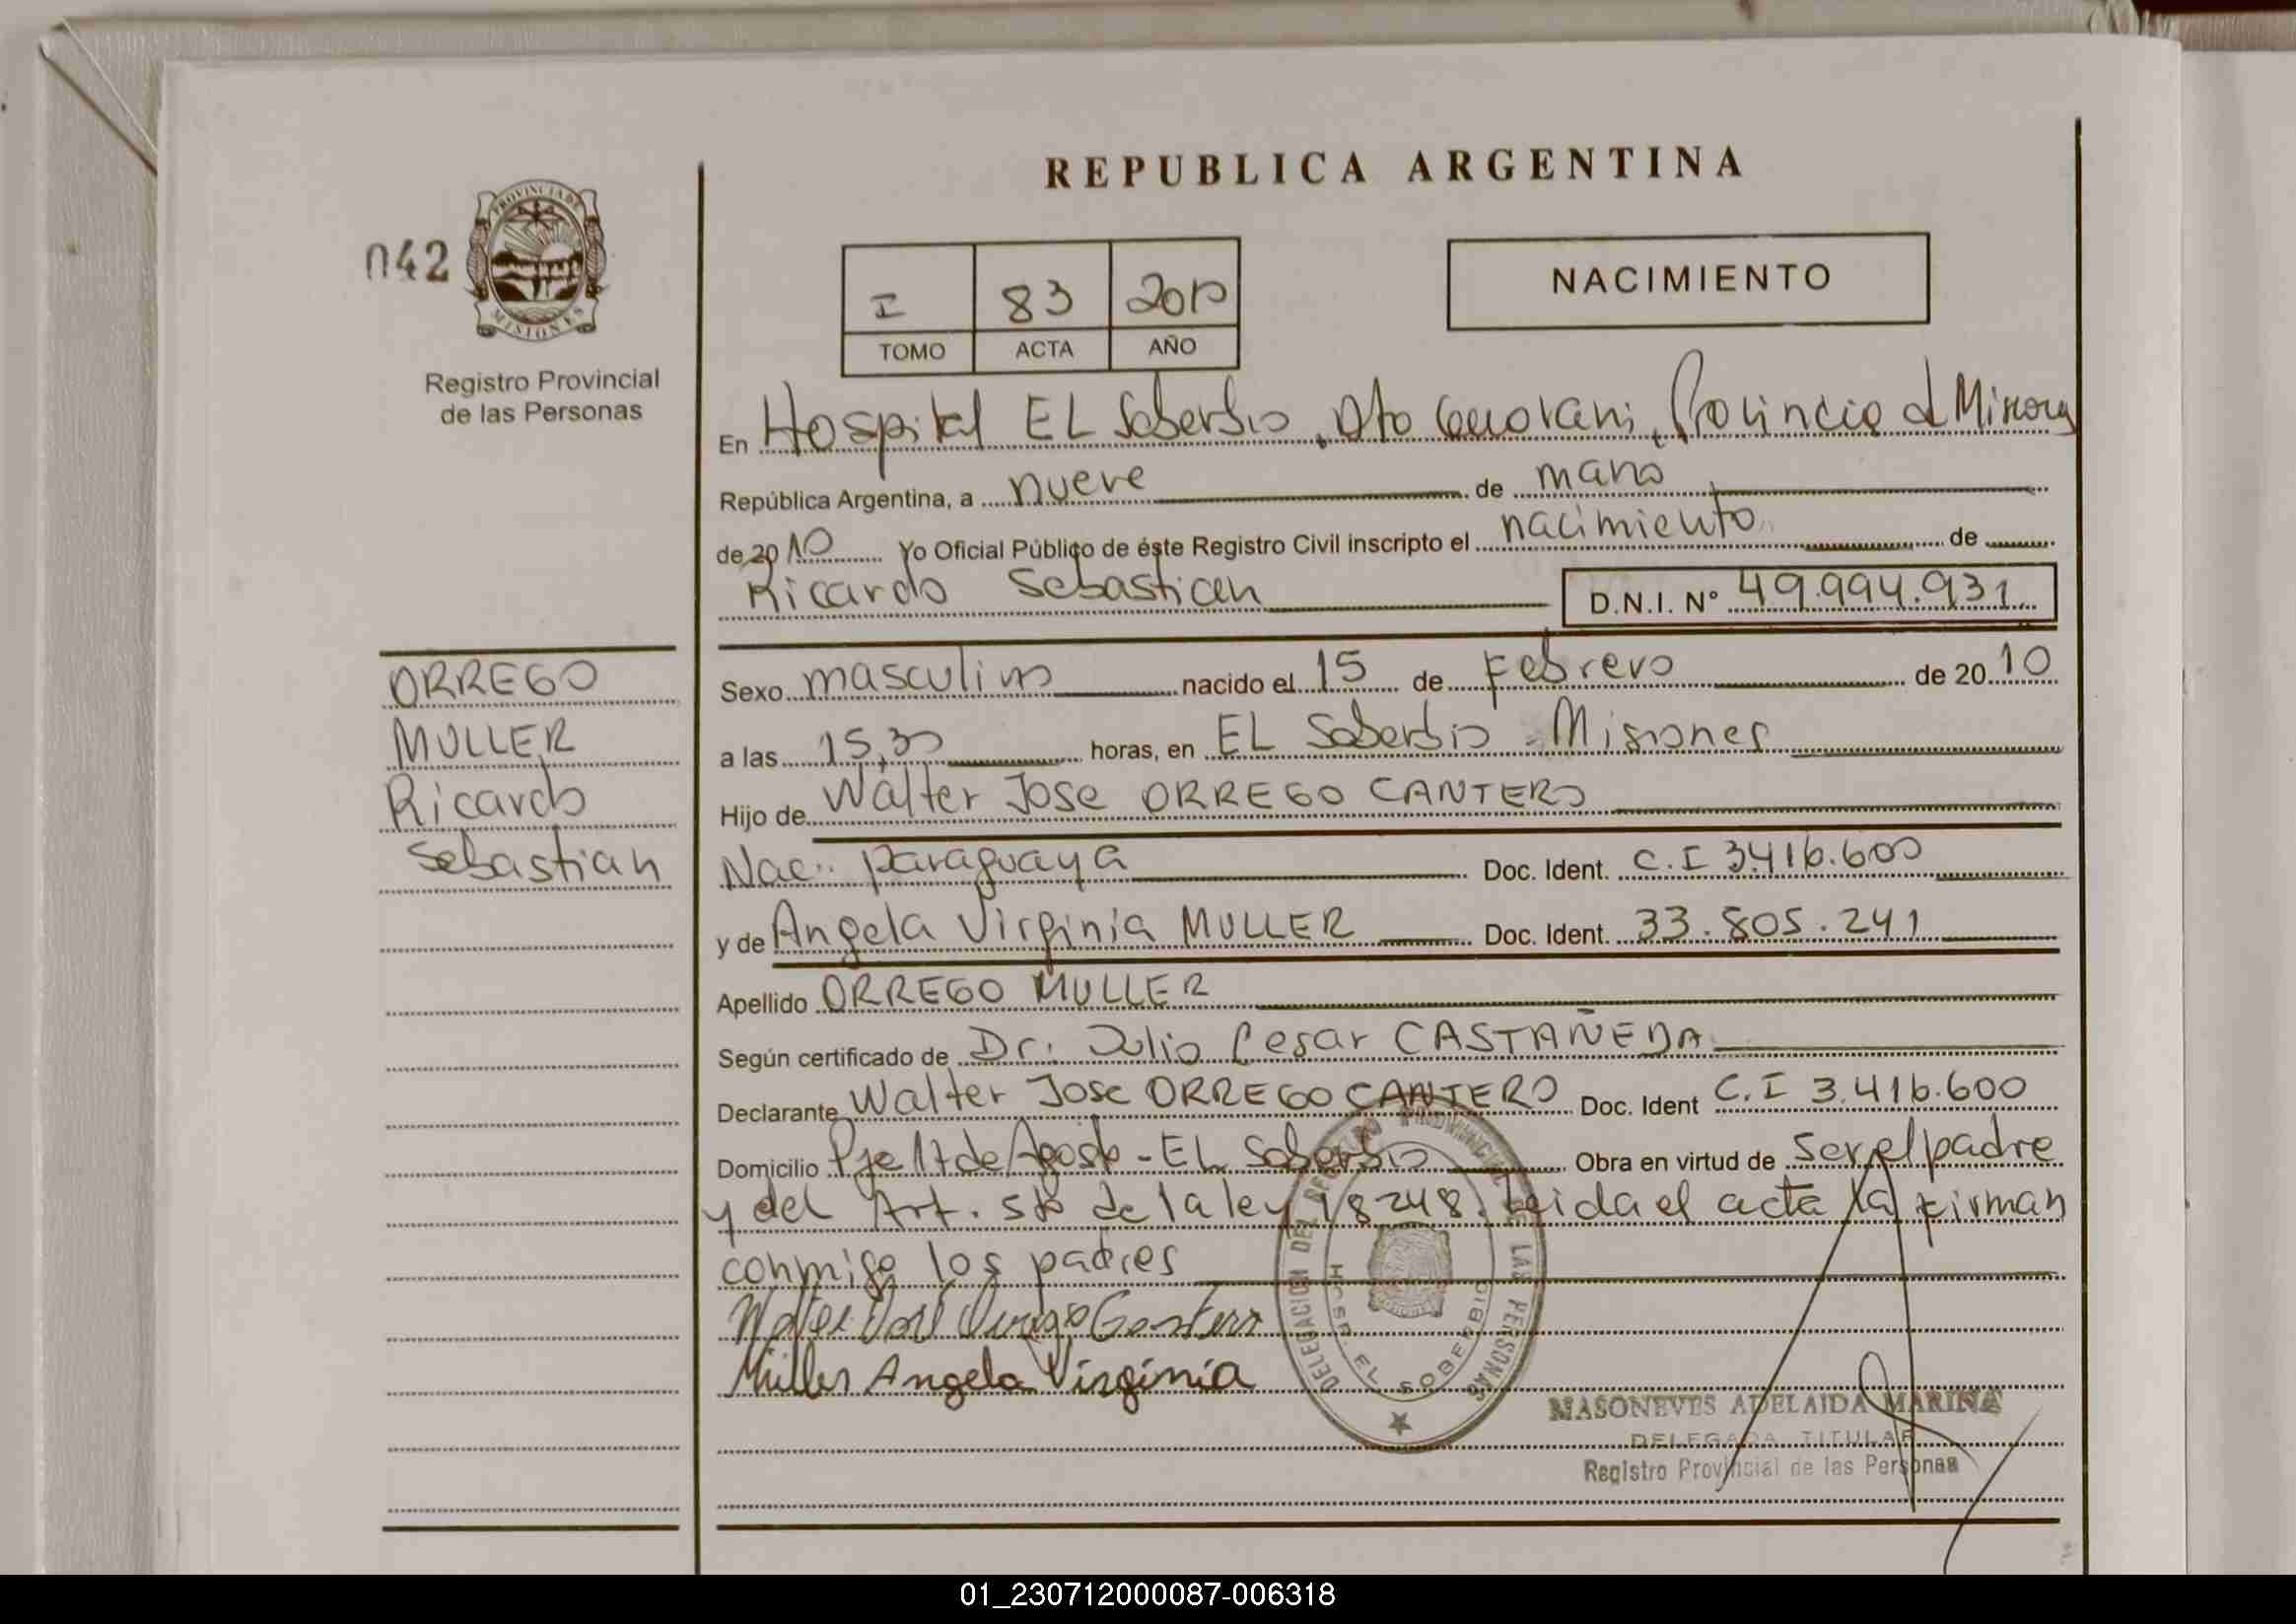 REPUBLICA ARGENTINA
042
PROVINCIA DE
MISIONES
Registro Provincial
de las Personas
I 83 2010
TOMO ACTA AÑO
NACIMIENTO
En Hospital EL Soberbio, Dto Guarani, Provincia d Misiones
República Argentina, a nueve de marzo
de 2010 Yo Oficial Público de éste Registro Civil inscripto el nacimiento de
Ricardo Sebastian D.N.I. N° 49.994.931
ORREGO
MULLER
Ricardo
Sebastian
Sexo masculino nacido el 15 de Febrero de 2010
a las 15,30 horas, en EL Soberbio - Misiones
Hijo de Walter Jose ORREGO CANTERO
Nac. paraguaya Doc. Ident. C.I 3.416.600
y de Angela Virginia MULLER Doc. Ident. 33.805.241
Apellido ORREGO MULLER
Según certificado de Dr. Julio Cesar CASTAÑEDA
Declarante Walter Jose ORREGO CANTERO Doc. Ident C.I 3.416.600
Domicilio Pje 17 de Agosto - EL Soberbio Obra en virtud de ser el padre
y del Art. 5to de la ley 18248. Leida el acta la firman
conmigo los padres
Walter José Orrego Cantero
Müller Angela Virginia
DELEGACION DEL REGISTRO PROVINCIAL DE LAS PERSONAS
HOSP. EL SOBERBIO
MASONEVES ADELAIDA MARINA
DELEGADA TITULAR
Registro Provincial de las Personas
01_230712000087-006318